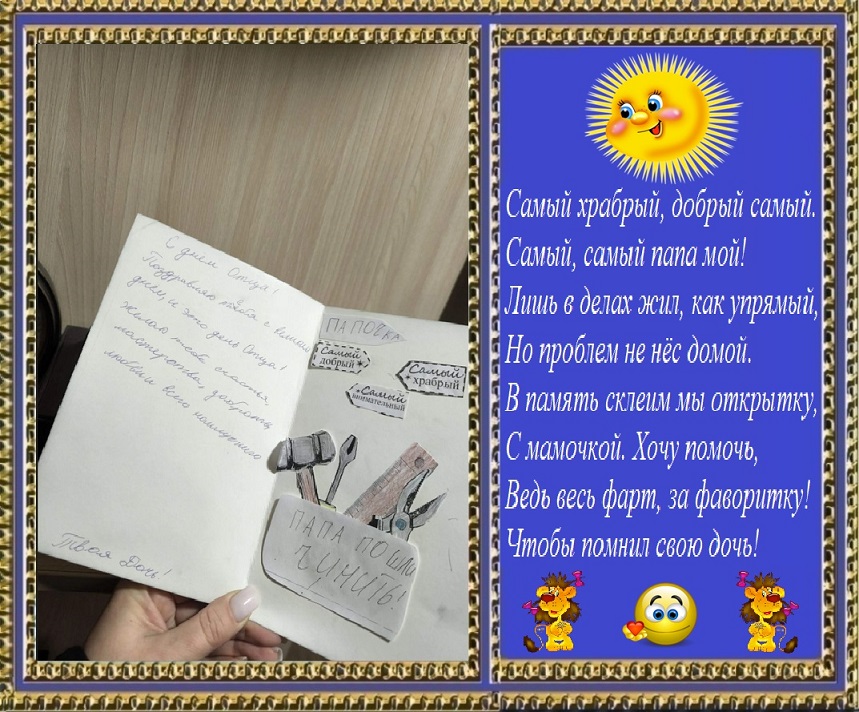 С днём Отца!
Поздравляю тебя с
днём, и это день Отца!
Желаю тебе счастья,
мастерства, доброты,
любви и всего наилучшего
Твоя Дочь!
ПАПОЧКА
Самый
добрый
Самый
храбрый
Самый
внимательный
ПАПА ПО
ЧИНИТЬ!
Самый храбрый, добрый самый.
Самый, самый папа мой!
Лишь в делах жил, как упрямый,
Но проблем не нёс домой.
В память склеим мы открытку,
С мамочкой. Хочу помочь,
Ведь весь фарт, за фаворитку!
Чтобы помнил свою дочь!